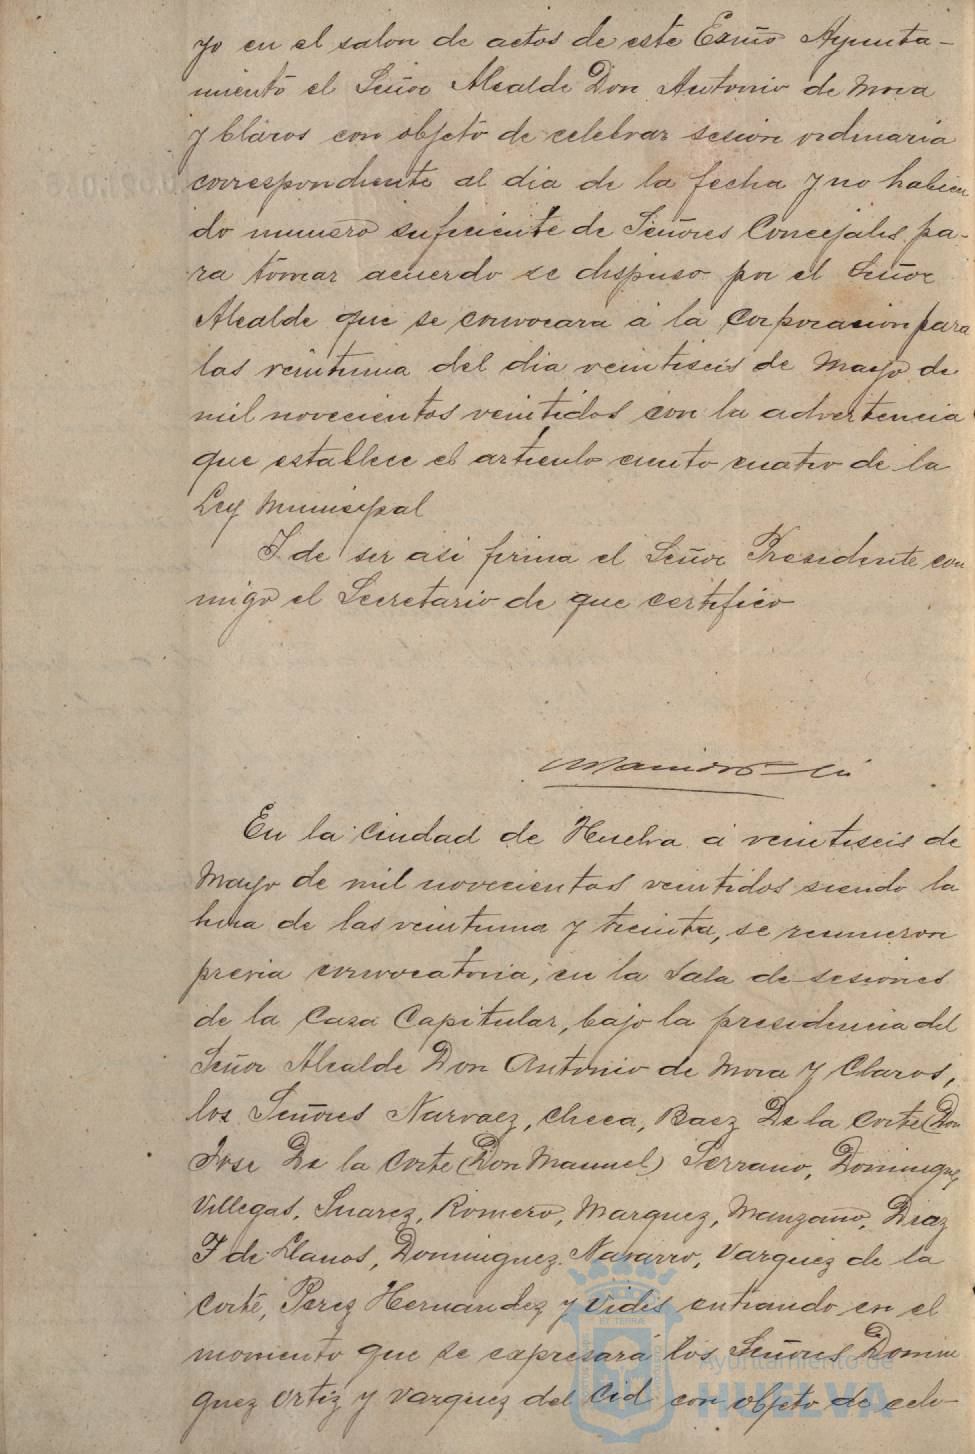 yo en el salon de actos de este Exmo Ayunta-
miento el Señor Alcalde Don Antonio de Mora
y Claros con objeto de celebrar sesion ordinaria
correspondiente al dia de la fecha y no habien
do numero suficiente de Señores Concejales pa-
ra tomar acuerdo se dispuso por el Señor
Alcalde que se convocara á la Corporacion para
las veintiuna del dia veintiseis de Mayo de
mil novecientos veintidos con la advertencia
que establece el articulo ciento cuatro de la
Ley Municipal
Y de ser asi firma el Señor Presidente con
migo el Secretario de que certifico
En la Ciudad de Huelva á veintiseis de
Mayo de mil novecientos veintidos siendo la
hora de las veintiuna y treinta, se reunieron
previa convocatoria, en la Sala de sesiones
de la Casa Capitular, bajo la presidencia del
Señor Alcalde Don Antonio de Mora y Claros,
los Señores Narvaez, Checa, Baez De la Corte (Don
Jose De la Corte (Don Manuel) Serrano, Dominguez
Villegas, Suarez, Romero, Marquez, Manzano, Diaz
Y de Llanos, Dominguez Navarro, Vazquez de la
Corte, Perez Hernandez y Vides entrando en el
momento que se expresará los Señores Domin
guez Ortiz y Vazquez del Cid con objeto de cele-
ET TERRAE
Ayuntamiento de
HUELVA